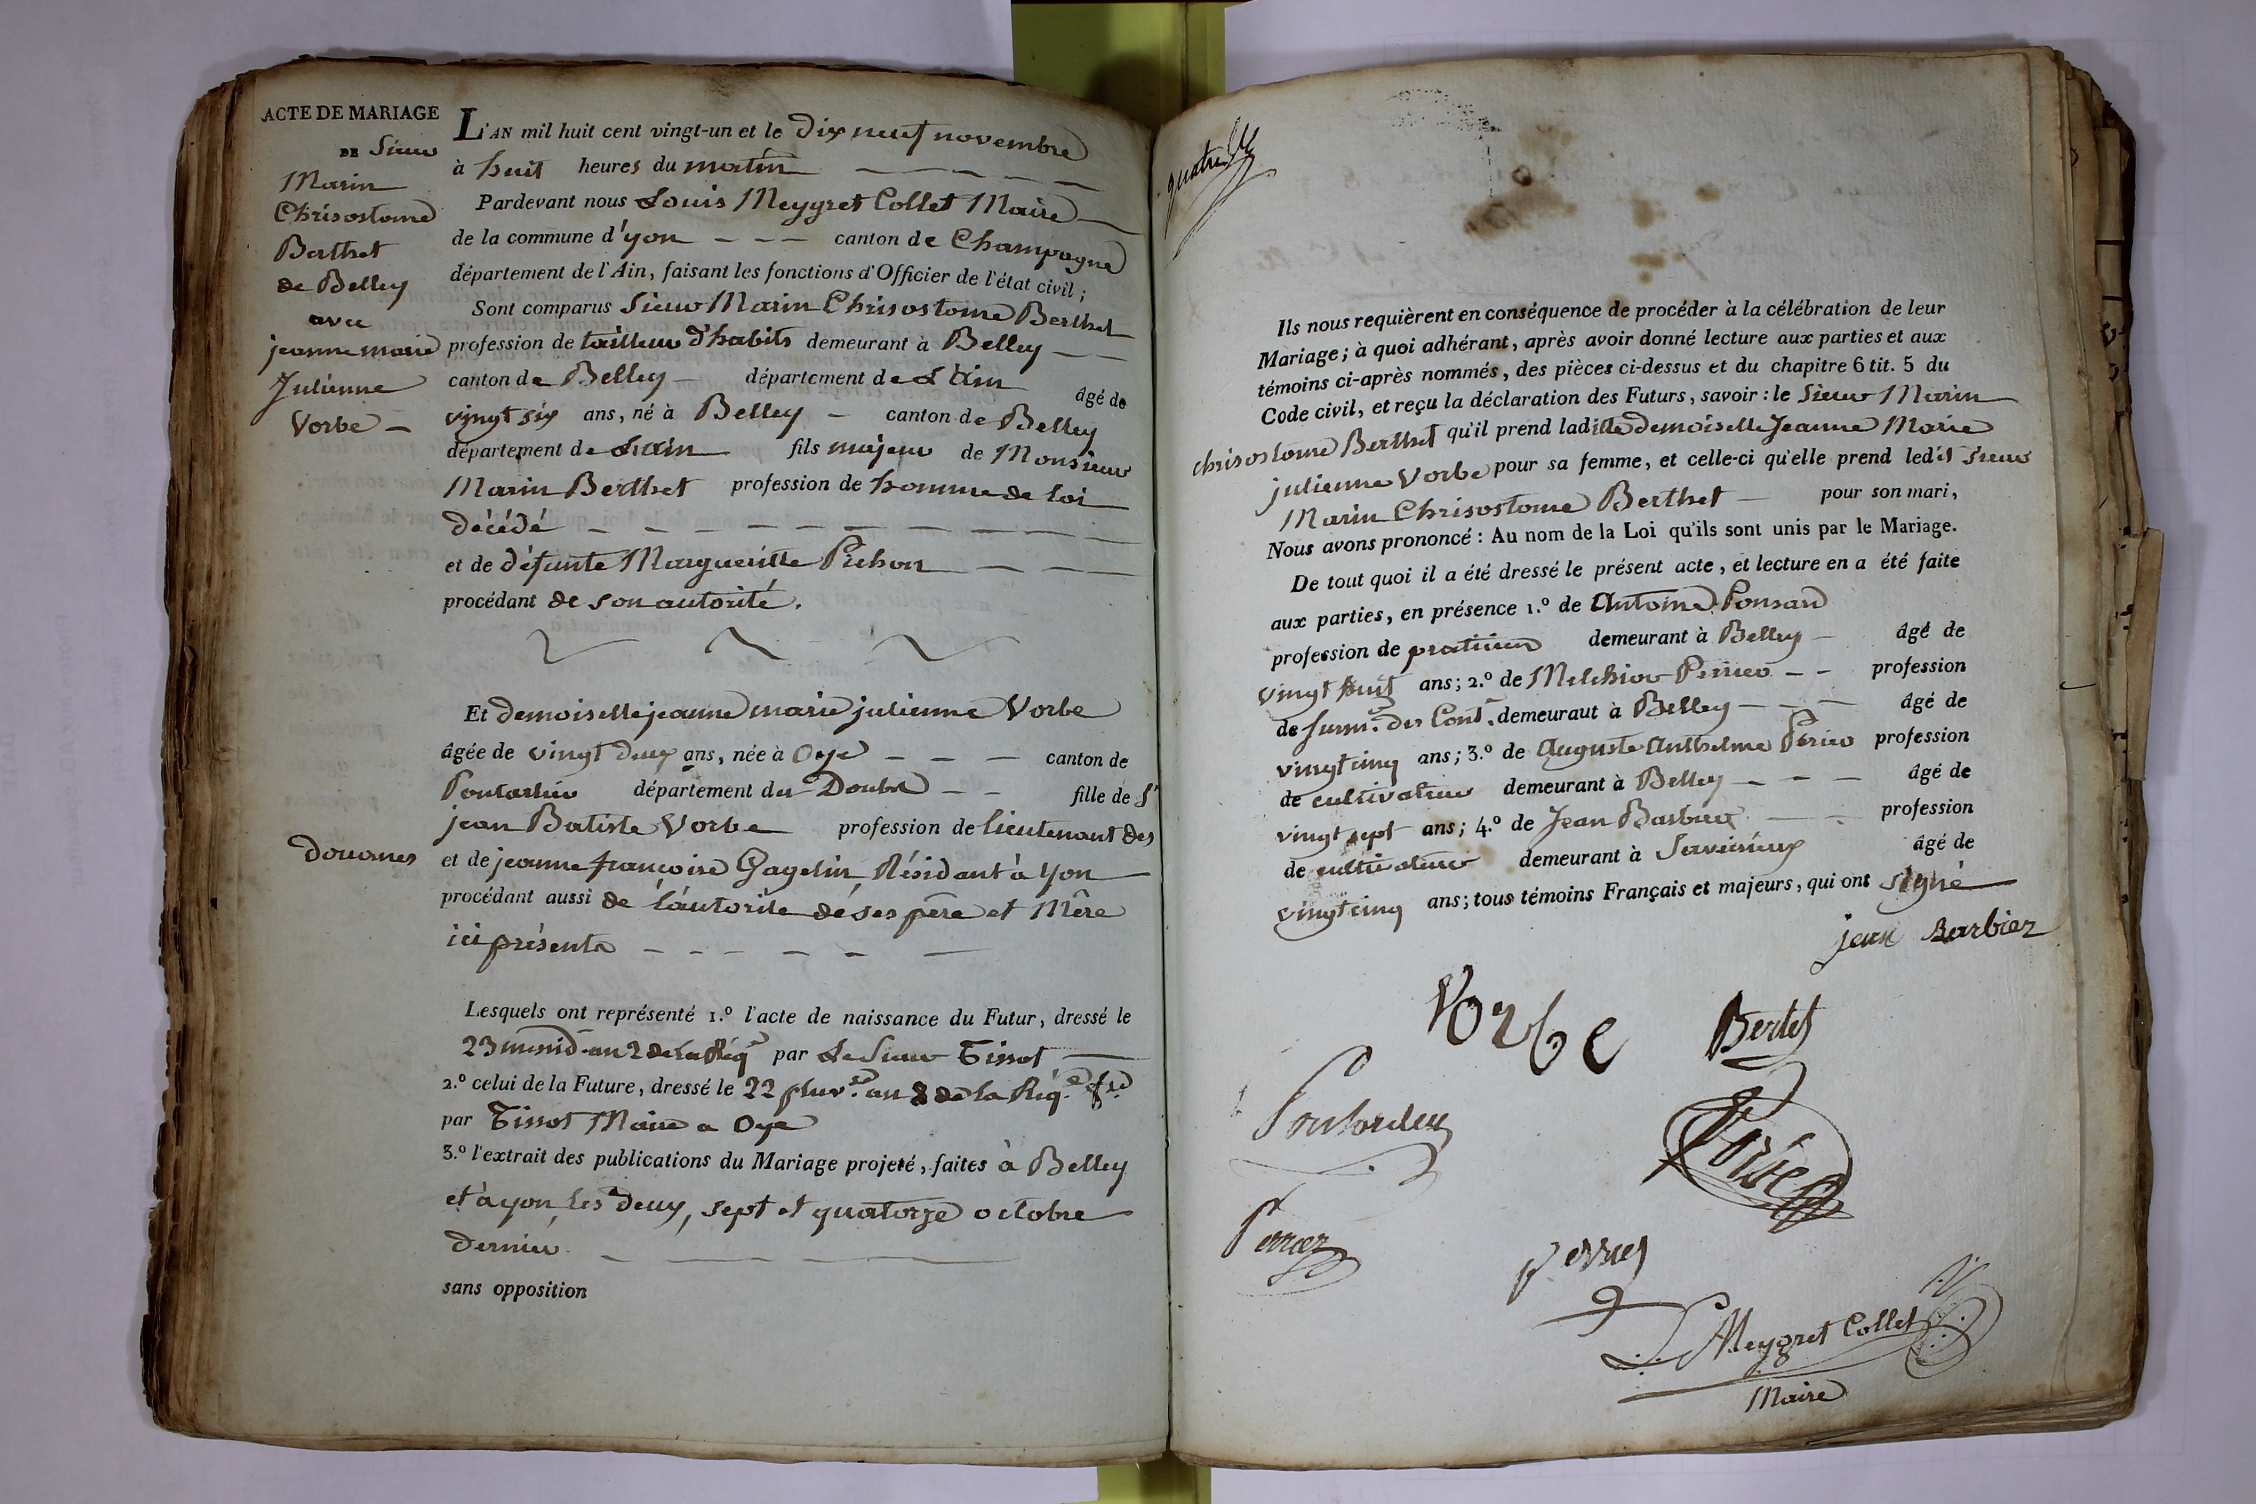 ACTE DE MARIAGE
DE Sieur
Marin
Chrisostome
Berthet
de Belley
avec
jeanne marie
Julienne
Vorbe
L'AN mil huit cent vingt-un et le dix neuf novembre
à huit heures du matin
Pardevant nous Louis Meygret Collet Maire
de la commune d'yon canton de Champagne
département de l'Ain, faisant les fonctions d'Officier de l'état civil;
Sont comparus Sieur Marin Chrisostome Berthet
profession de tailleur d'habits demeurant à Belley
canton de Belley département de L'ain âgé de
vingt six ans, né à Belley canton de Belley
département de L'ain fils majeur de Monsieur
Marin Berthet profession de homme de loi
décédé
et de défunte Margueritte Pichon
procédant de son autorité.
Et demoiselle jeanne marie julienne Vorbe
âgée de vingt deux ans, née à Oye canton de
Pontarlier département du Doubs fille de Sr
jean Batiste Vorbe profession de lieutenant des
douanes
et de jeanne françoise Gagelin, Résidant à yon
procédant aussi de l'autorité de ses père et Mère
ici présents
Lesquels ont représenté 1.º l'acte de naissance du Futur, dressé le
23 messid. an 2 de la Rép. par le Sieur Tissot
2.º celui de la Future, dressé le 22 pluv.se an 8 de la Rép.e fse
par Tissot Maire a Oye
3.º l'extrait des publications du Mariage projeté, faites à Belley
et à yon, les deux, sept et quatorze octobre
dernier
sans opposition
quatre
Ils nous requièrent en conséquence de procéder à la célébration de leur
Mariage; à quoi adhérant, après avoir donné lecture aux parties et aux
témoins ci-après nommés, des pièces ci-dessus et du chapitre 6 tit. 5 du
Code civil, et reçu la déclaration des Futurs, savoir: le Sieur Marin
chrisostome Berthet qu'il prend ladite demoiselle Jeanne Marie
julienne Vorbe pour sa femme, et celle-ci qu'elle prend ledit Sieur
Marin Chrisostome Berthet pour son mari,
Nous avons prononcé: Au nom de la Loi qu'ils sont unis par le Mariage.
De tout quoi il a été dressé le présent acte, et lecture en a été faite
aux parties, en présence 1.º de Antoine Ponsard
profession de praticien demeurant à Belley âgé de
vingt huit ans; 2.º de Melchior Perrier profession
de des demeurant à Belley âgé de
vingt cinq ans; 3.º de Auguste Anthelme Périer profession
de cultivateur demeurant à Belley âgé de
vingt sept ans; 4.º de Jean Barbier profession
de cultivateur demeurant à Serverieux âgé de
vingt cinq ans; tous témoins Français et majeurs, qui ont signé
jean Barbier
Vorbe Bertet
Perrier
L Meygret Collet
Maire